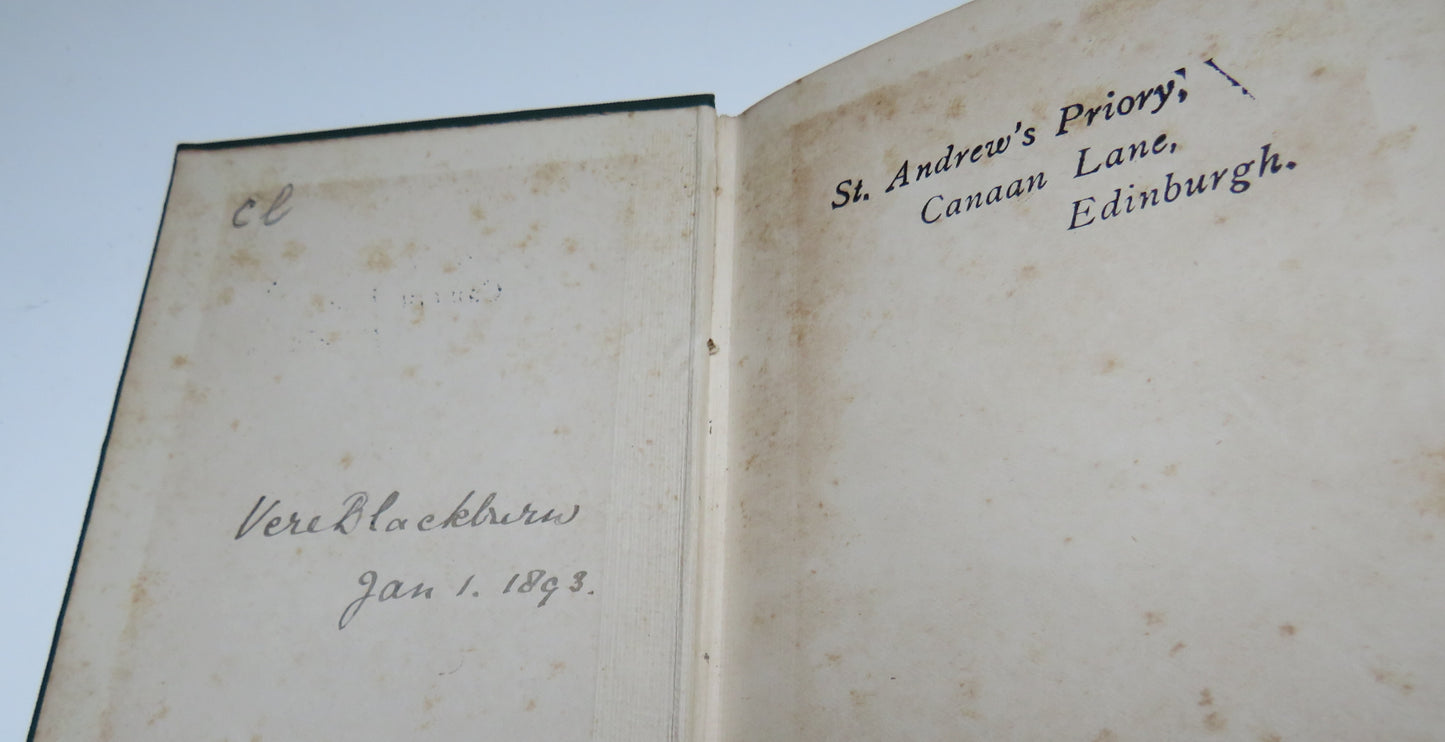 cl
Vere Blackburn
Jan 1. 1893.
St. Andrew's Priory,
Canaan Lane,
Edinburgh.